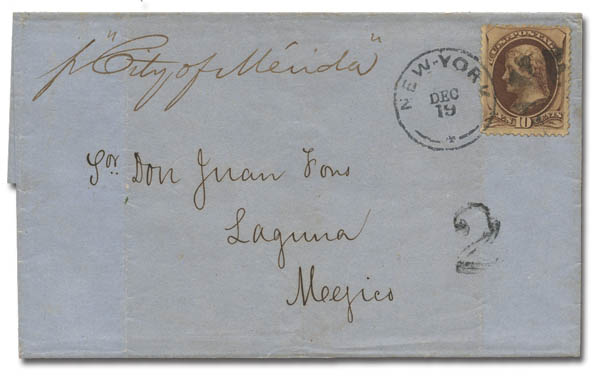 p "City of Mérida"
NEW-YORK
DEC
19
U.S. POSTAGE
10
Sor. Don Juan Fons
Laguna
2
Megico